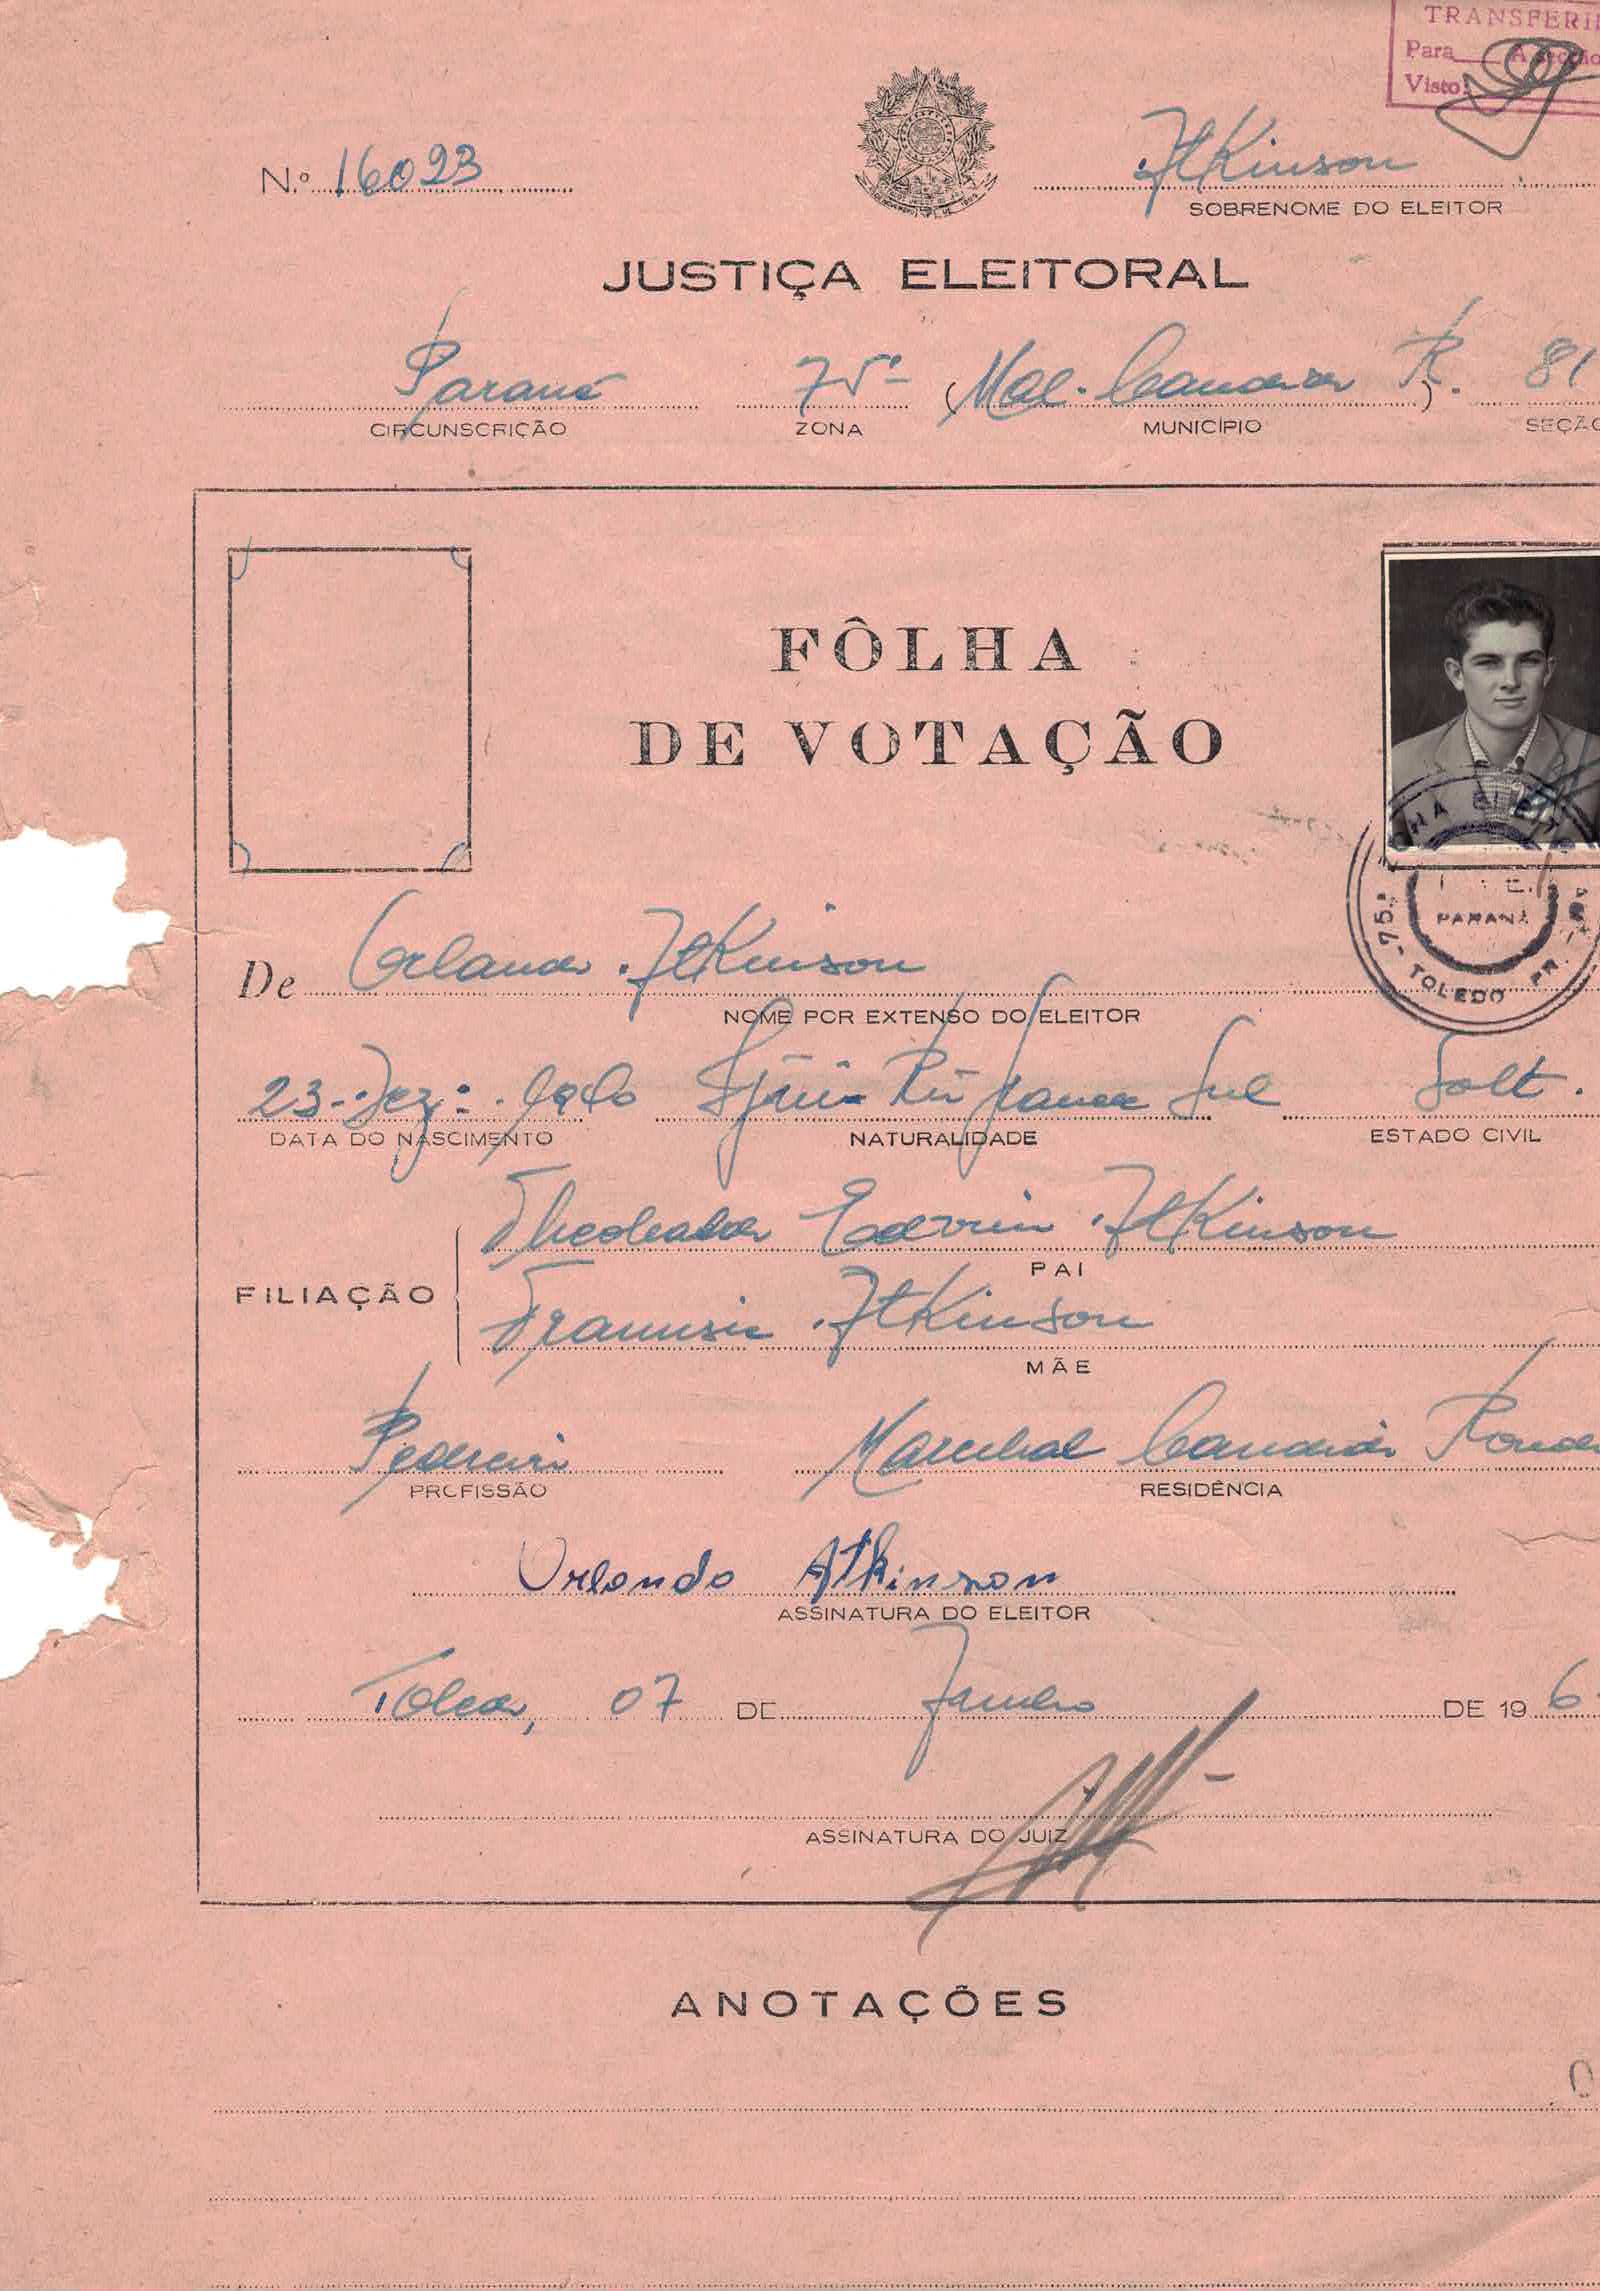 TRANSFERI
Para A secção
Visto:
N.º 16023
Atkinson
SOBRENOME DO ELEITOR
JUSTIÇA ELEITORAL
Paraná 75ª (Mal. Candido R.) 81
CIRCUNSCRIÇÃO ZONA MUNICÍPIO SEÇÃO
FÔLHA
DE VOTAÇÃO
75.ª ZONA ELEITO
PARANÁ
TOLEDO PR.
De Orlando Atkinson
NOME POR EXTENSO DO ELEITOR
23 Dez. 1940 Ijuí Rio Grande Sul Solt.
DATA DO NASCIMENTO NATURALIDADE ESTADO CIVIL
Edwin Atkinson
PAI
FILIAÇÃO
Atkinson
MÃE
Pedreiro Marechal Candido Rondon
PROFISSÃO RESIDÊNCIA
Orlando Atkinson
ASSINATURA DO ELEITOR
Toledo, 07 DE Janeiro DE 19 6
ASSINATURA DO JUIZ
ANOTAÇÕES